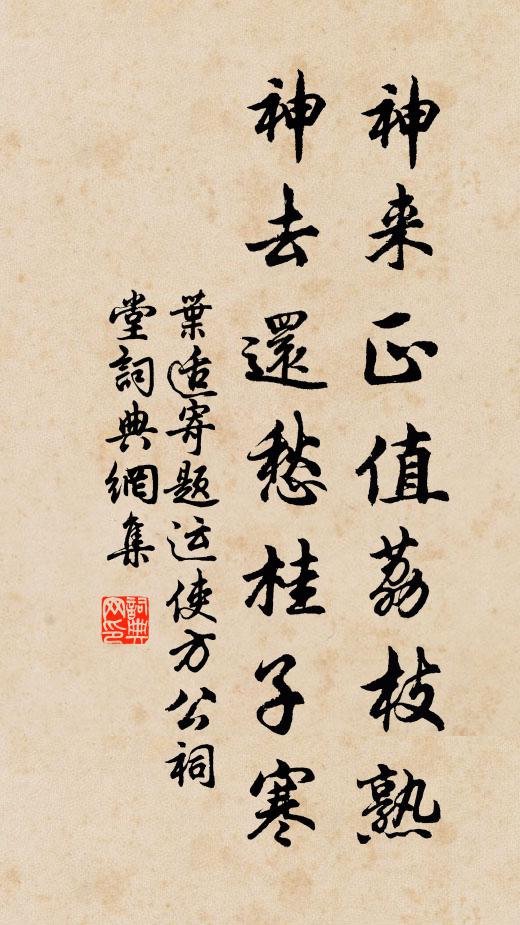 神来正值荔枝熟
神去還愁桂子寒
葉适寄题运使方公祠
堂詞典網集
詞典
网印